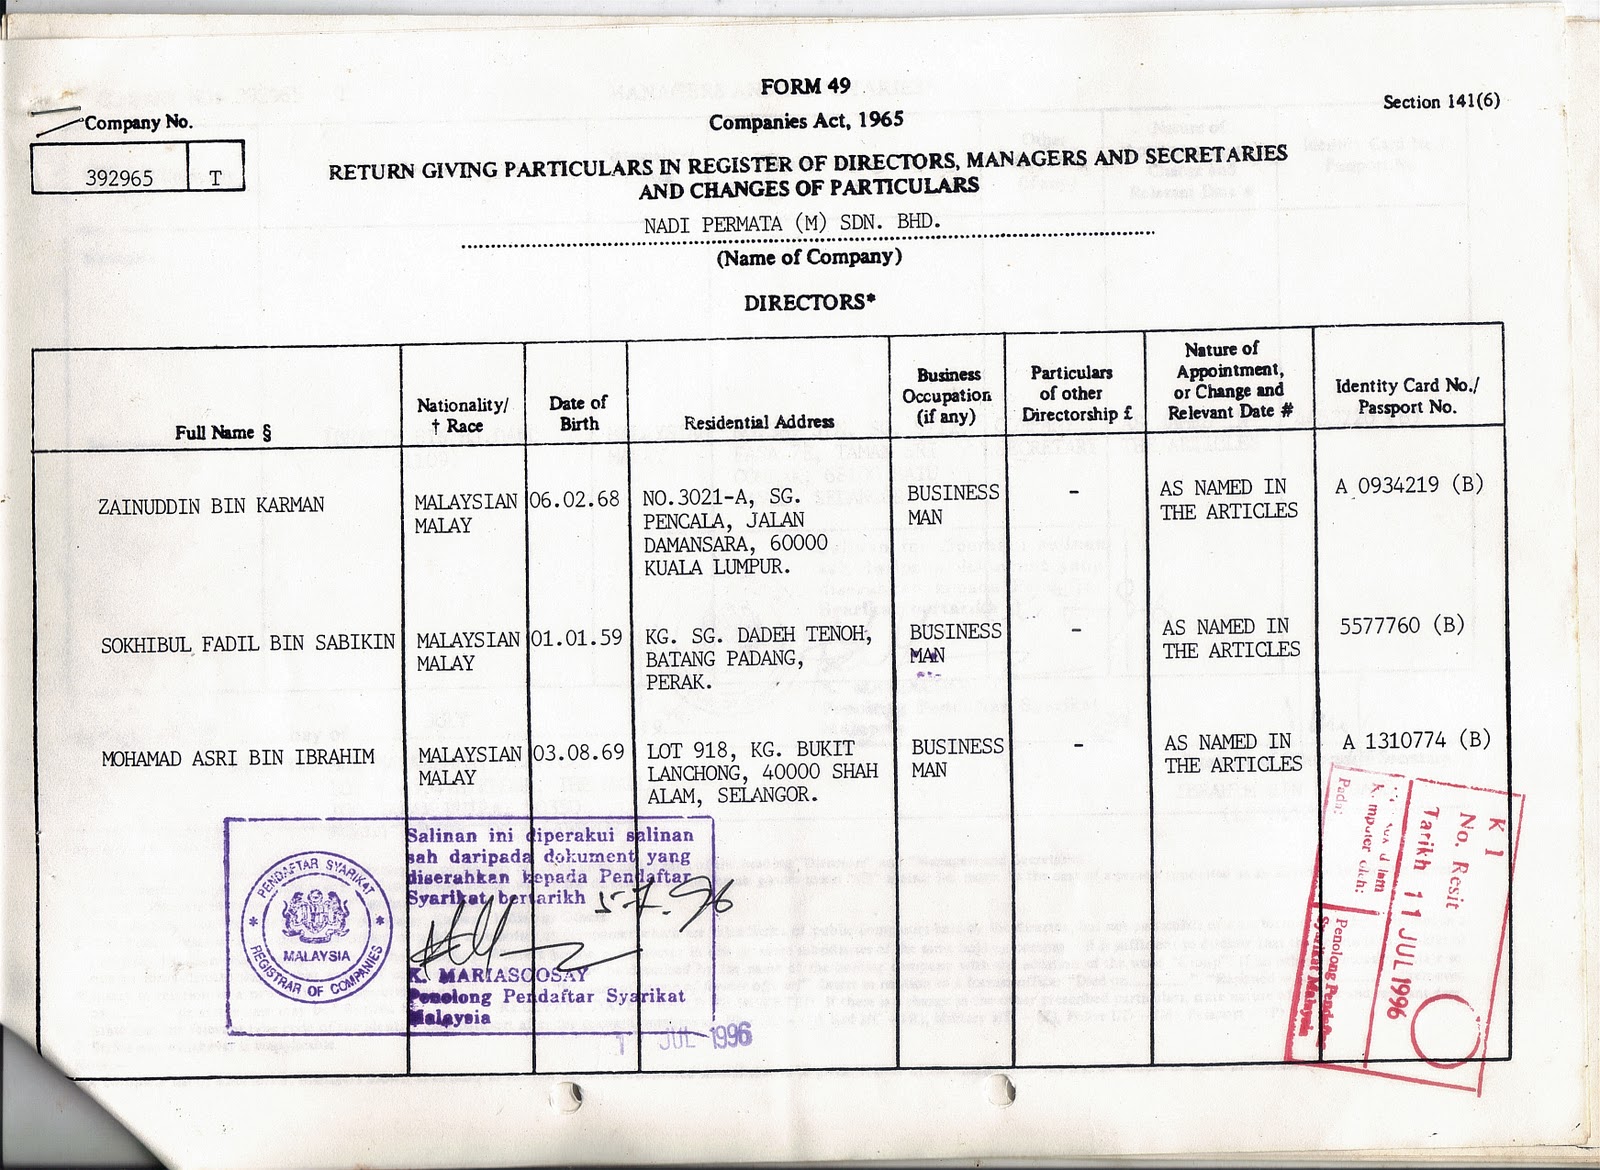 FORM 49
Section 141(6)
Company No.
Companies Act, 1965
392965 T
RETURN GIVING PARTICULARS IN REGISTER OF DIRECTORS, MANAGERS AND SECRETARIES
AND CHANGES OF PARTICULARS
NADI PERMATA (M) SDN. BHD.
(Name of Company)
DIRECTORS*
Full Name §
Nationality/
† Race
Date of
Birth
Residential Address
Business
Occupation
(if any)
Particulars
of other
Directorship £
Nature of
Appointment,
or Change and
Relevant Date #
Identity Card No./
Passport No.
ZAINUDDIN BIN KARMAN
MALAYSIAN
MALAY
06.02.68
NO.3021-A, SG.
PENCALA, JALAN
DAMANSARA, 60000
KUALA LUMPUR.
BUSINESS
MAN
-
AS NAMED IN
THE ARTICLES
A 0934219 (B)
SOKHIBUL FADIL BIN SABIKIN
MALAYSIAN
MALAY
01.01.59
KG. SG. DADEH TENOH,
BATANG PADANG,
PERAK.
BUSINESS
MAN
-
AS NAMED IN
THE ARTICLES
5577760 (B)
MOHAMAD ASRI BIN IBRAHIM
MALAYSIAN
MALAY
03.08.69
LOT 918, KG. BUKIT
LANCHONG, 40000 SHAH
ALAM, SELANGOR.
BUSINESS
MAN
-
AS NAMED IN
THE ARTICLES
A 1310774 (B)
PENDAFTAR SYARIKAT
MALAYSIA
REGISTRAR OF COMPANIES
Salinan ini diperakui salinan
sah daripada dokument yang
diserahkan kepada Pendaftar
Syarikat bertarikh 5-7-96
K. MARIASOOSAY
Penolong Pendaftar Syarikat
Malaysia
JUL 1996
K 1
No. Resit
Tarikh 11 JUL 1996
Pada:
Penolong Pendaftar
Syarikat Malaysia